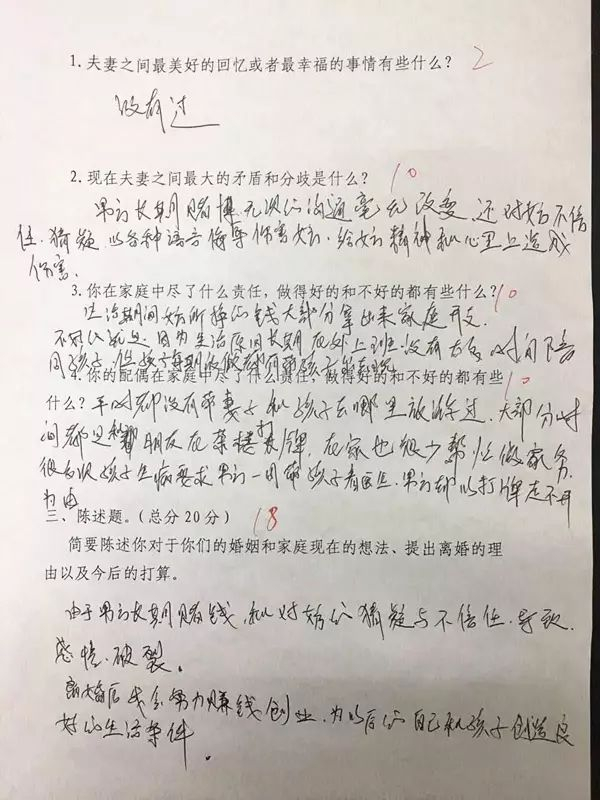 1.夫妻之间最美好的回忆或者最幸福的事情有些什么？ 2
没有过
2.现在夫妻之间最大的矛盾和分歧是什么？ 10
男方长期赌博无次的沟通毫无改变，还对女方不信
任.猜疑.以各种语言侮辱伤害女方，给女方精神和心里上造成
伤害.
3.你在家庭中尽了什么责任，做得好的和不好的都有些什么？ 10
生活期间女方所挣的钱大部分拿出来家庭开支.
不好的就是因为生活原因长期在外上班没有太多时间
孩子
4.你的配偶在家庭中尽了什么责任，做得好的和不好的都有些 10
什么？平时都没有带妻子和孩子去哪里放松过.大部分时
间都是和朋友在茶楼打牌，在家也很少帮忙做家务，
孩子生病要求男方一同带孩子看医生.男方却以打牌走不开
为由
三、陈述题。（总分20分） 18
简要陈述你对于你们的婚姻和家庭现在的想法、提出离婚的理
由以及今后的打算。
由于男方长期赌钱，和对女方的猜疑与不信任.导致.
感情.破裂。
离婚后我会努力赚钱创业.为以后的自己和孩子创造良
好的生活条件.